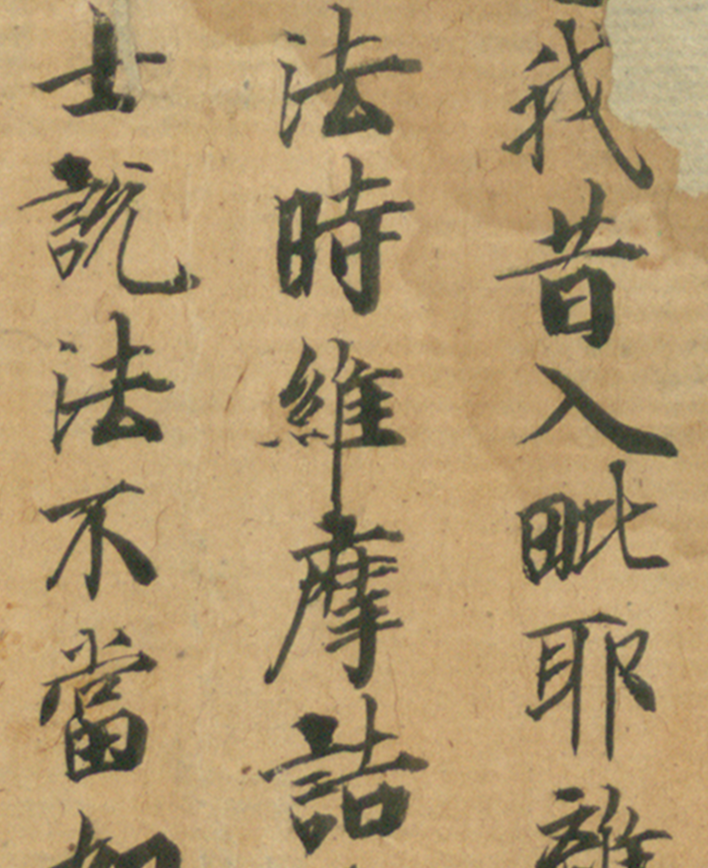 我昔入毗耶離
法時維摩詰
士說法不當如